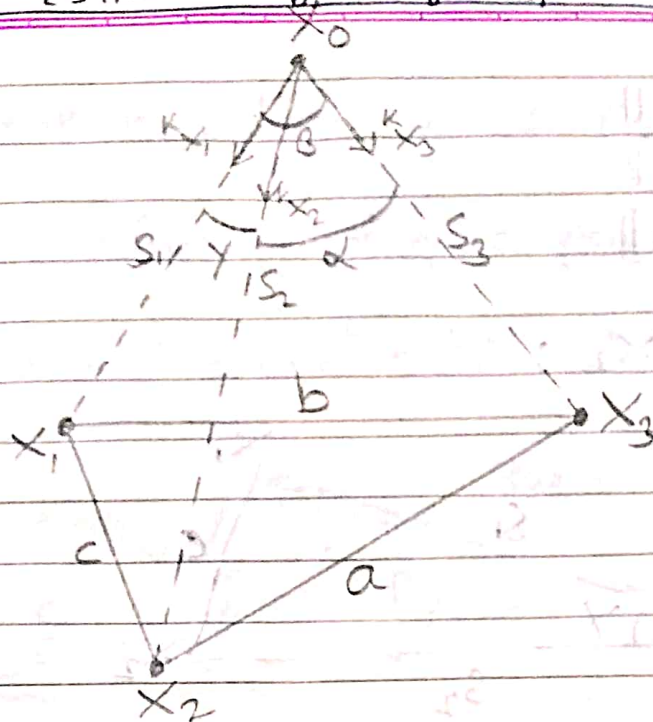 X0
K X1 β K X3
K X2
S1 γ α S3
S2
b
X1 X3
c a
X2